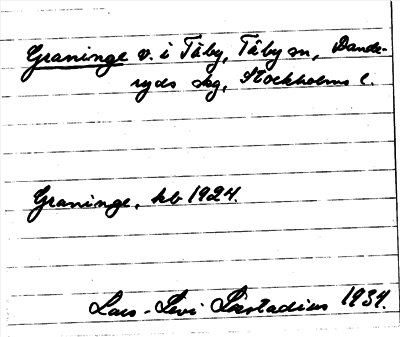 Graninge v. i Täby, Täby sn, Dande-
ryds skg, Stockholms l.
Graninge, kb 1924.
Lars-Levi Læstadius 1934.